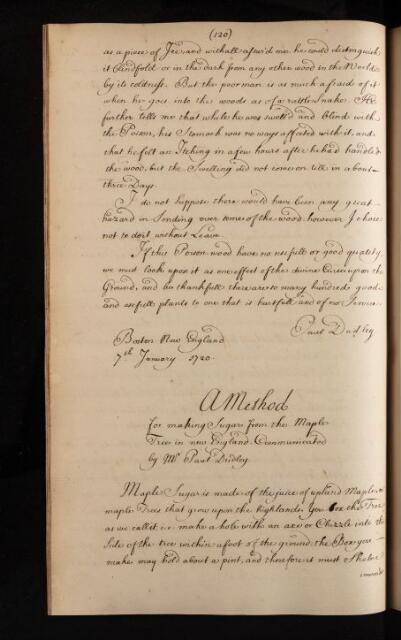 (120)
as a piece of Ice, and withall assur'd me he could distinguish
it blindfold or in the dark from any other wood in the World
by its coldness. But the poor man is as much afraid of it
when he goes into the woods as of a rattle Snake. He
further tells me that while he was swell'd and blind with
the Poison, his Stomach was no ways affected with it, and
that he felt an Itching in a few hours after he had handled
the wood, but the Swelling did not come on till in about
three Days.
I do not suppose there would have been any great
hazard in Sending over some of the wood, however I chose
not to do it without Leave.
If this Poison wood have no usefull or good quality
we must look upon it as one effect of the divine Curse upon the
Ground, and be thankfull there are so many hundred good
and usefull plants to one that is hurtfull and of no Service.
Paul Dudley
Boston New England
7th January 1720.
A Method
for making Sugar from the Maple
Tree in new England. Communicated
by Mr Paul Dudley
Maple Sugar is made of the juice of upland Maple, or
maple Trees that grow upon the highlands. You box the Tree
as we call it i.e. make a hole with an axe or Chizzle into the
Side of the tree within a foot of the ground, the Box you
make may hold about a pint, and therefore it must Shelve
inwards